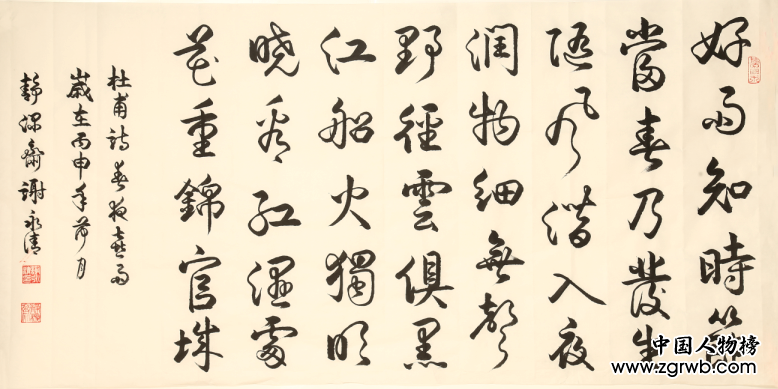 好雨知時節
當春乃發生
随風潜入夜
润物细無聲
野徑雲俱黑
江船火獨明
晓看红濕處
花重錦官城
杜甫詩春夜喜雨
歲在丙申年荷月
靜深齋謝永清
中国人物榜
www.zgrwb.com